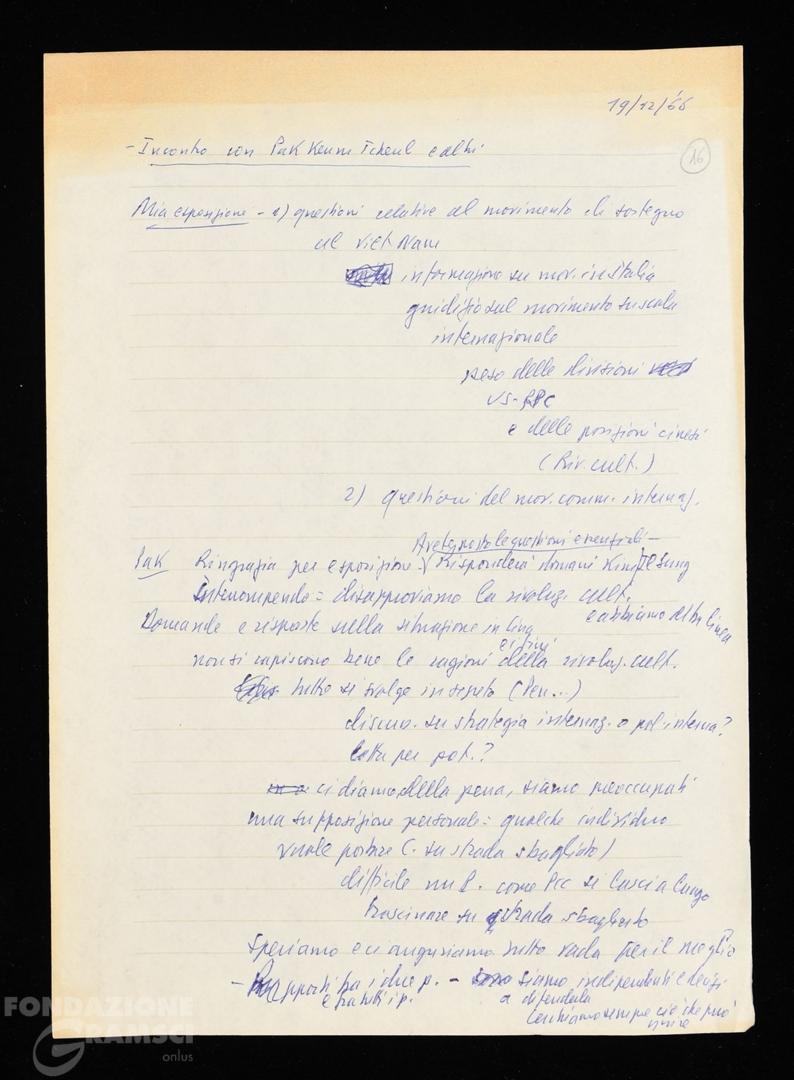 19/12/66
16
- Incontro con Pak Keum Tcheul e altri
Mia esposizione - 1) questioni relative al movimento di sostegno
al Viet Nam
informazione su mov. in Italia
giudizio sul movimento su scala
internazionale
peso delle divisioni
US-RPC
e delle posizioni cinesi
(Riv. cult.)
2) questioni del mov. comm. internaz.
Avete posto le questioni essenziali -
Pak Ringrazia per esposizione. Risponderà domani Kim Il Sung
Interrompendo = disapproviamo la rivoluz. cult.
e abbiamo altra linea
Domande e risposte sulla situazione in Cina
non si capiscono bene le ragioni e i fini della rivoluz. cult.
tutto si svolge in segreto (Pen...)
discuss. su strategia internaz. o pol. interna?
lotta per pot.?
ci diamo della pena, siamo preoccupati
una supposizione personale = qualche individuo
vuole portare C. su strada sbagliata
difficile come Pcc si lasci a lungo
trascinare su strada sbagliata
Speriamo e ci auguriamo tutto vada per il meglio
- Rapporti fra i due p. - siamo indipendenti e decisi
e fra tutti i p.
a difenderla
Cerchiamo sempre ciò che può
unire
FONDAZIONE
GRAMSCI
onlus